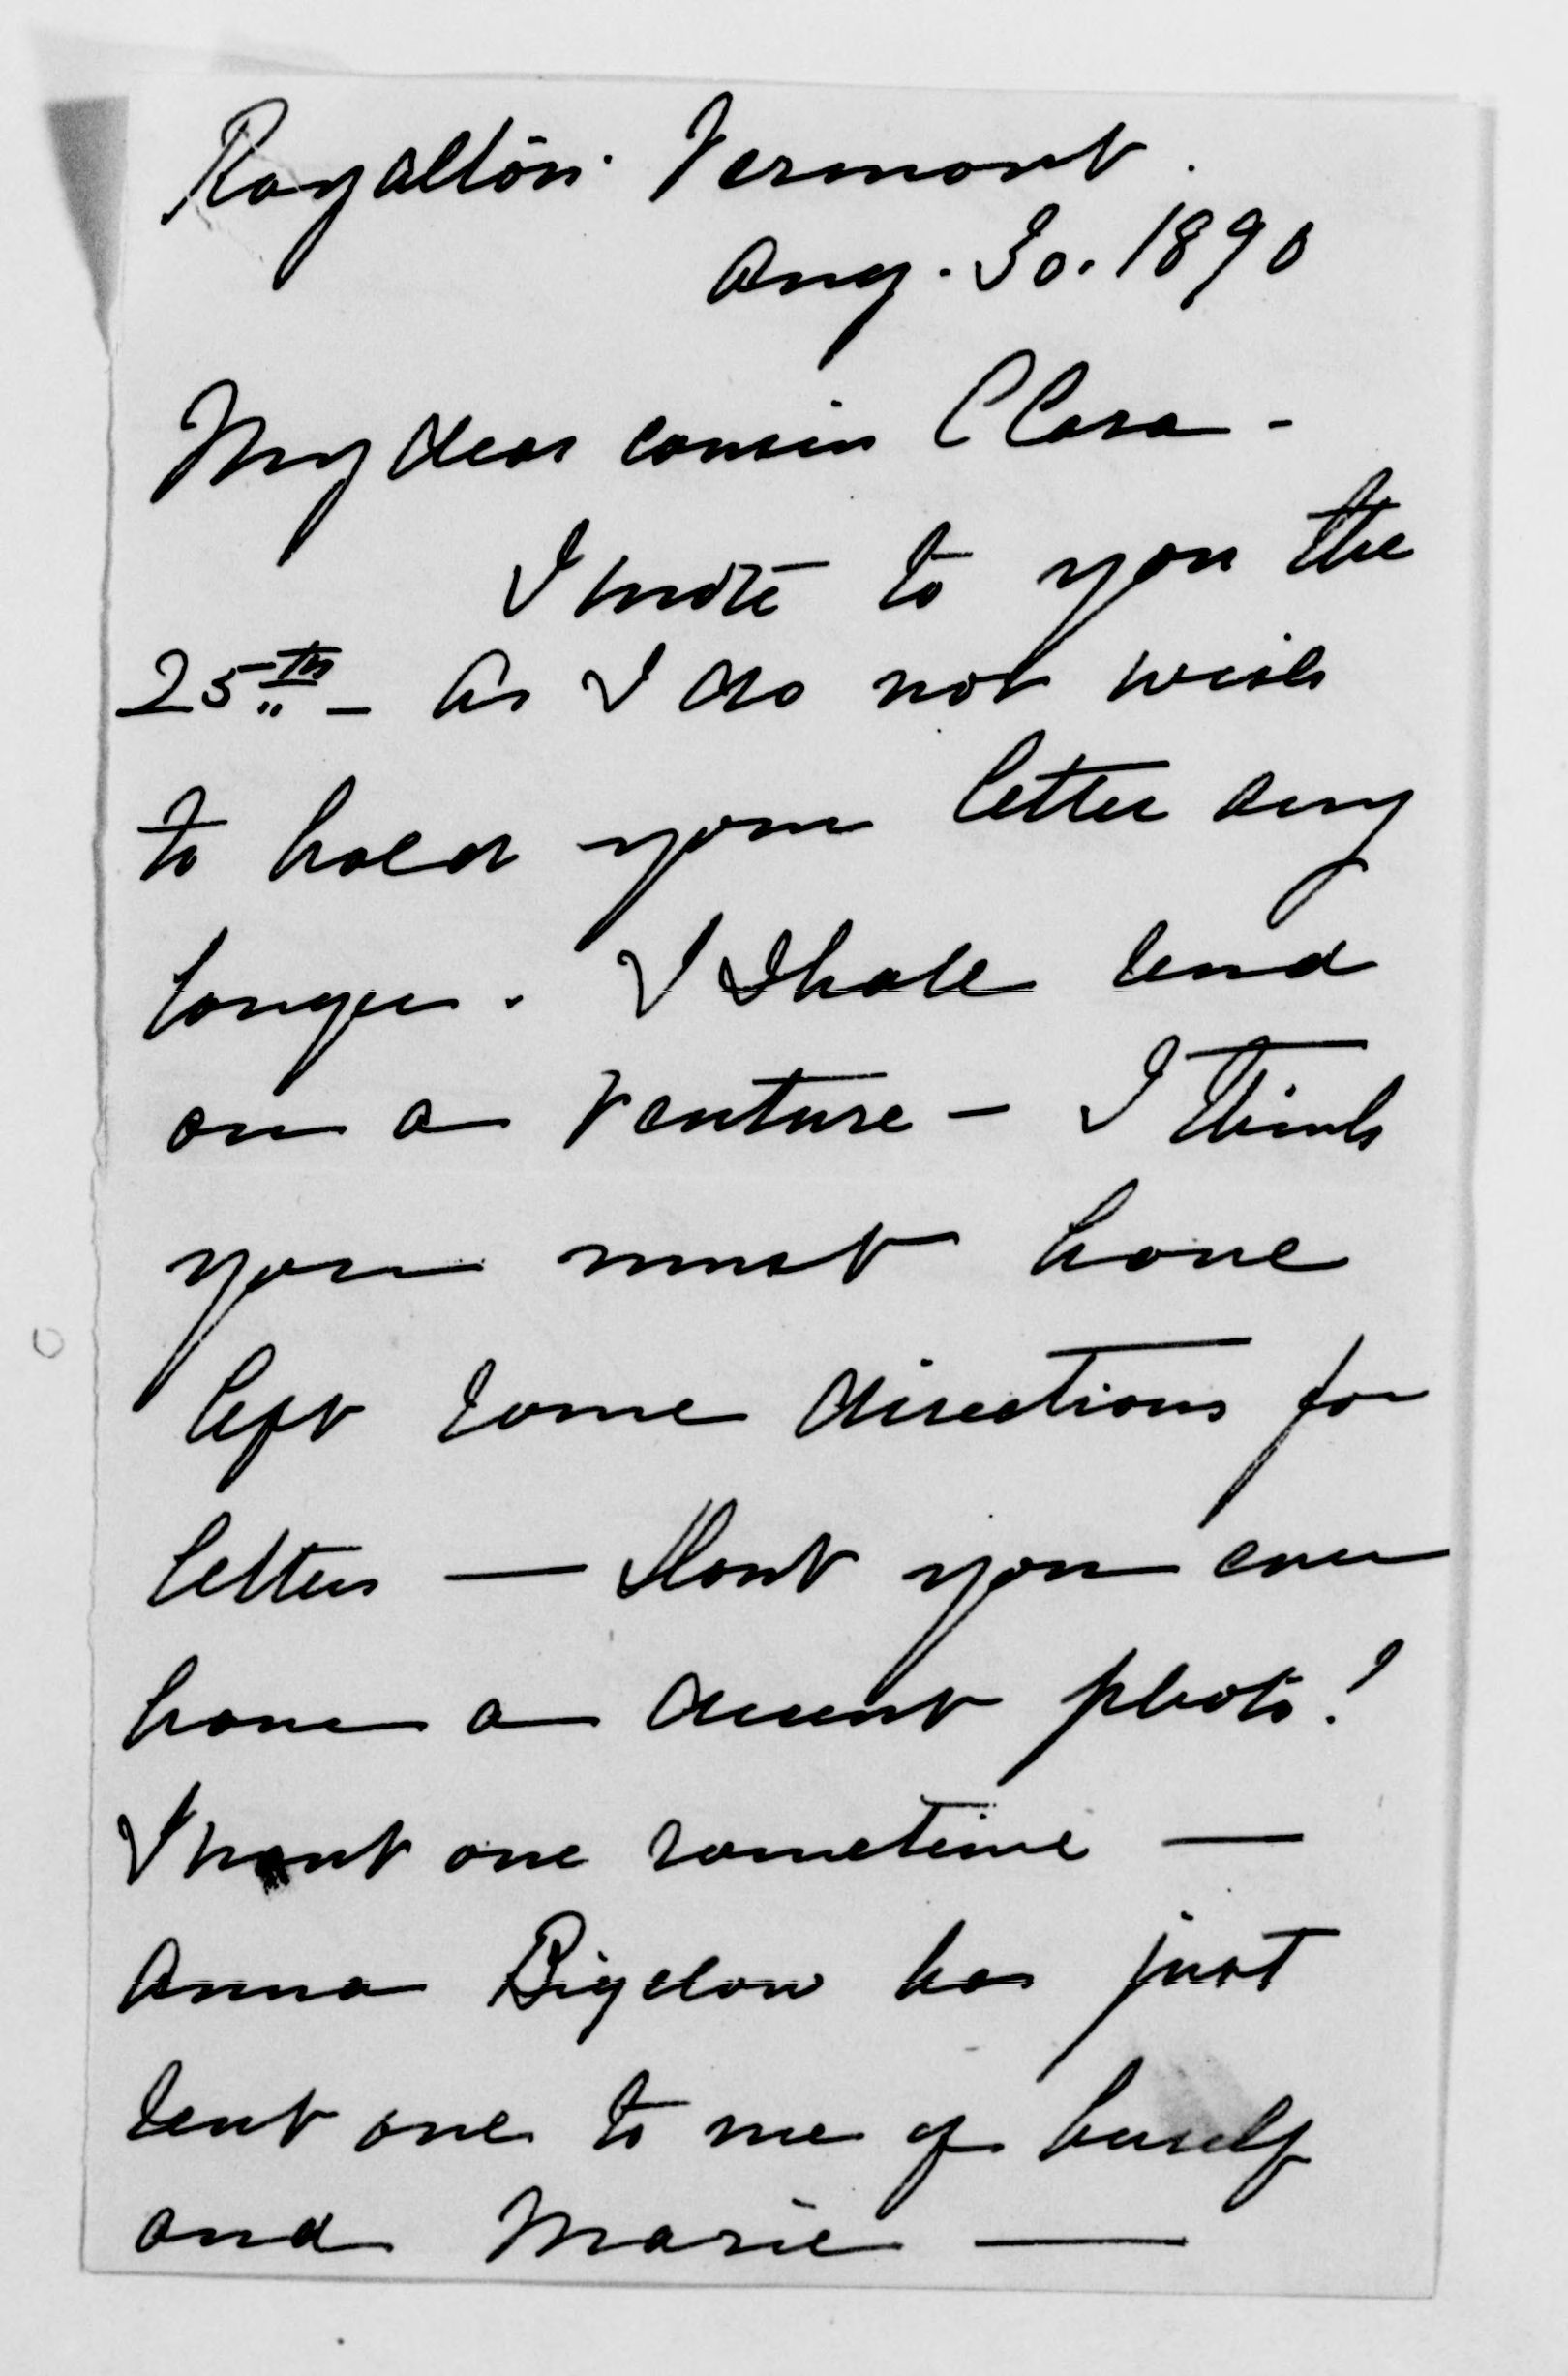 Royalton. Vermont.
Aug. 30. 1890
My dear cousin Clara -
I wrote to you the
25th - As I do not wish
to hold your letter any
longer. I shall send
on a venture - I think
you must have
left some directions for
letters — Hav'nt you ever
have a decent photo?
I want one sometime —
Anna Bigelow has just
sent one to me of herself
and Marie —